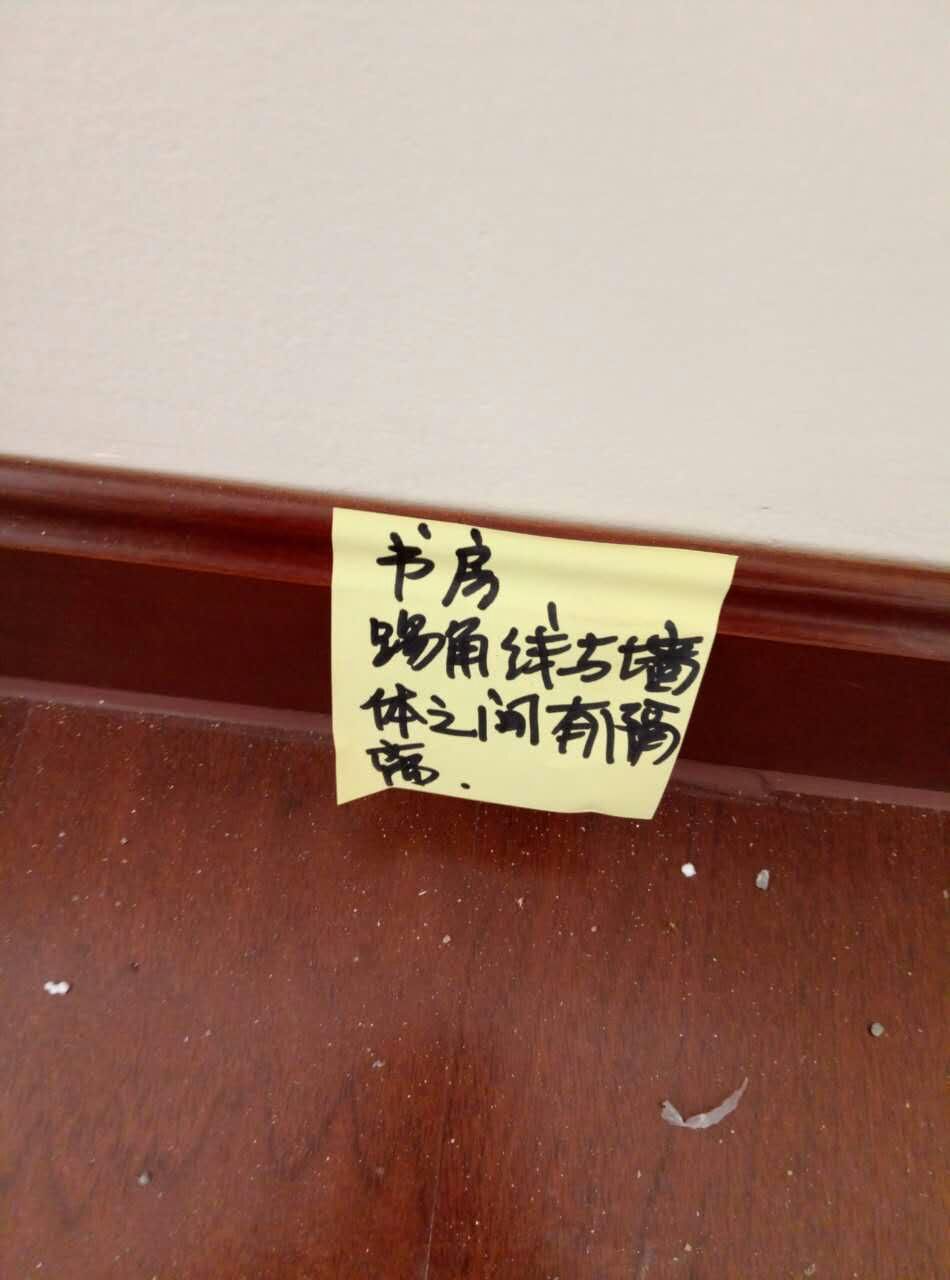 书房
踢角线与墙
体之间有隔
离.